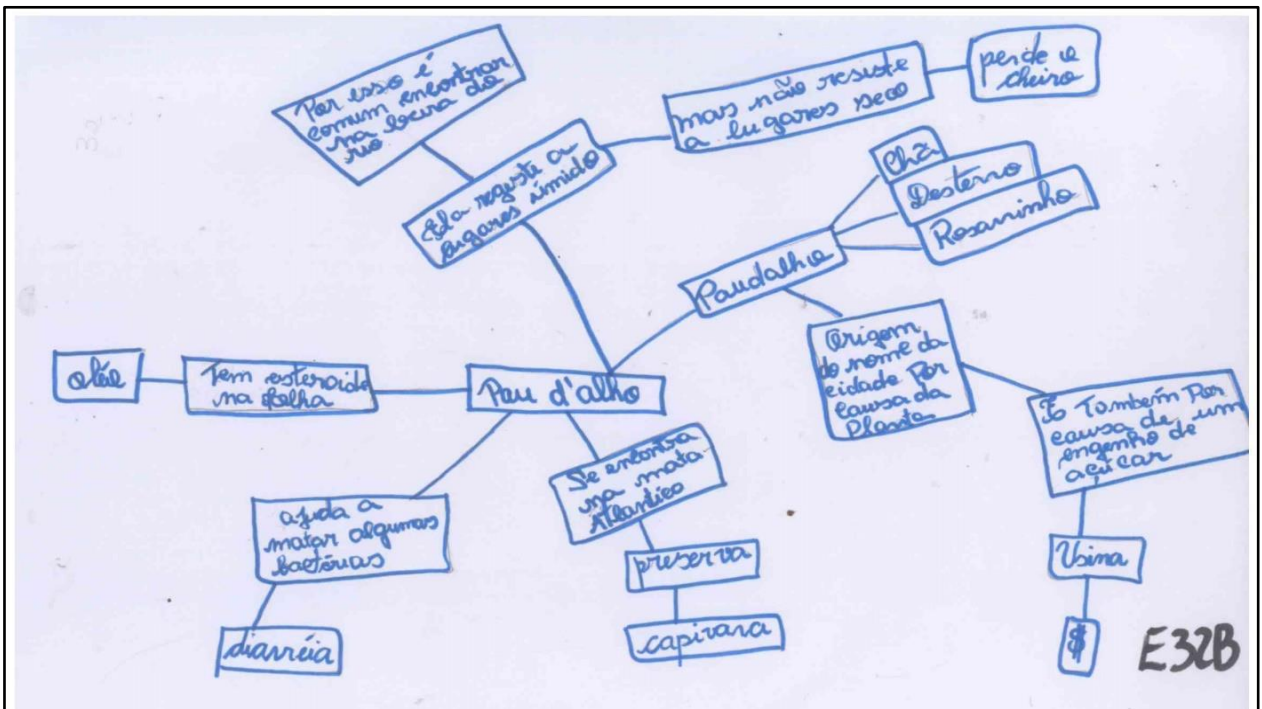 Por esso é
comum encontrar
na beira do
rio
mas não resiste
a lugares seco
perde o
cheiro
Ela registe a
lugares úmido
Chã
Desterro
Rosarinho
Paudalho
Origem
do nome da
cidade Por
causa da
Planta
Também Por
causa de um
engenho de
açúcar
óléo
Tem esteroide
na folha
Pau d'alho
Se encontra
na mata
Atlantico
ajuda a
matar algumas
bactérias
preserva
Usina
diarréia
capivara
$
E32B